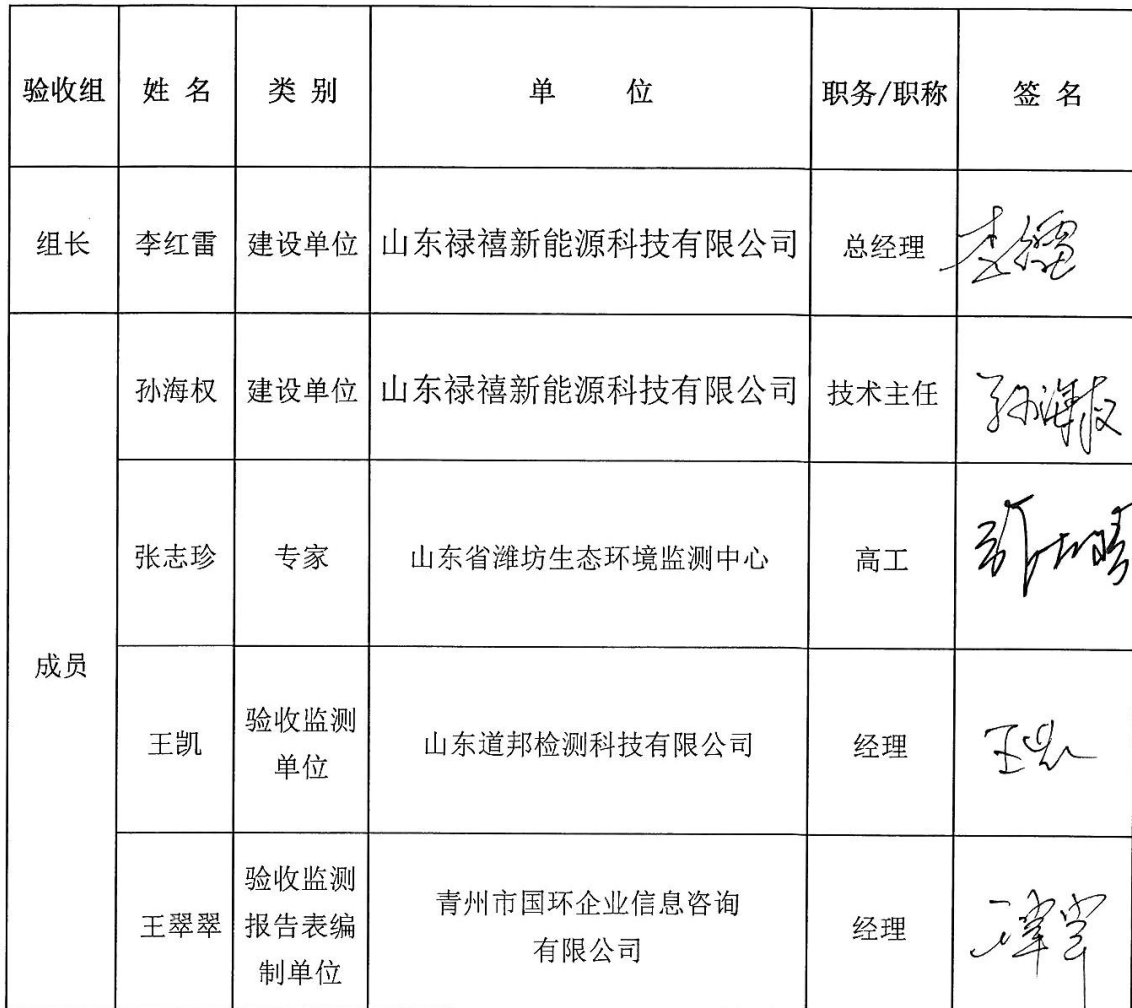 验收组 姓 名 类 别 单 位 职务/职称 签 名
组长 李红雷 建设单位 山东禄禧新能源科技有限公司 总经理
孙海权 建设单位 山东禄禧新能源科技有限公司 技术主任 孙海权
张志珍 专家 山东省潍坊生态环境监测中心 高工
成员
王凯 验收监测
单位 山东道邦检测科技有限公司 经理
王翠翠 验收监测
报告表编
制单位 青州市国环企业信息咨询
有限公司 经理